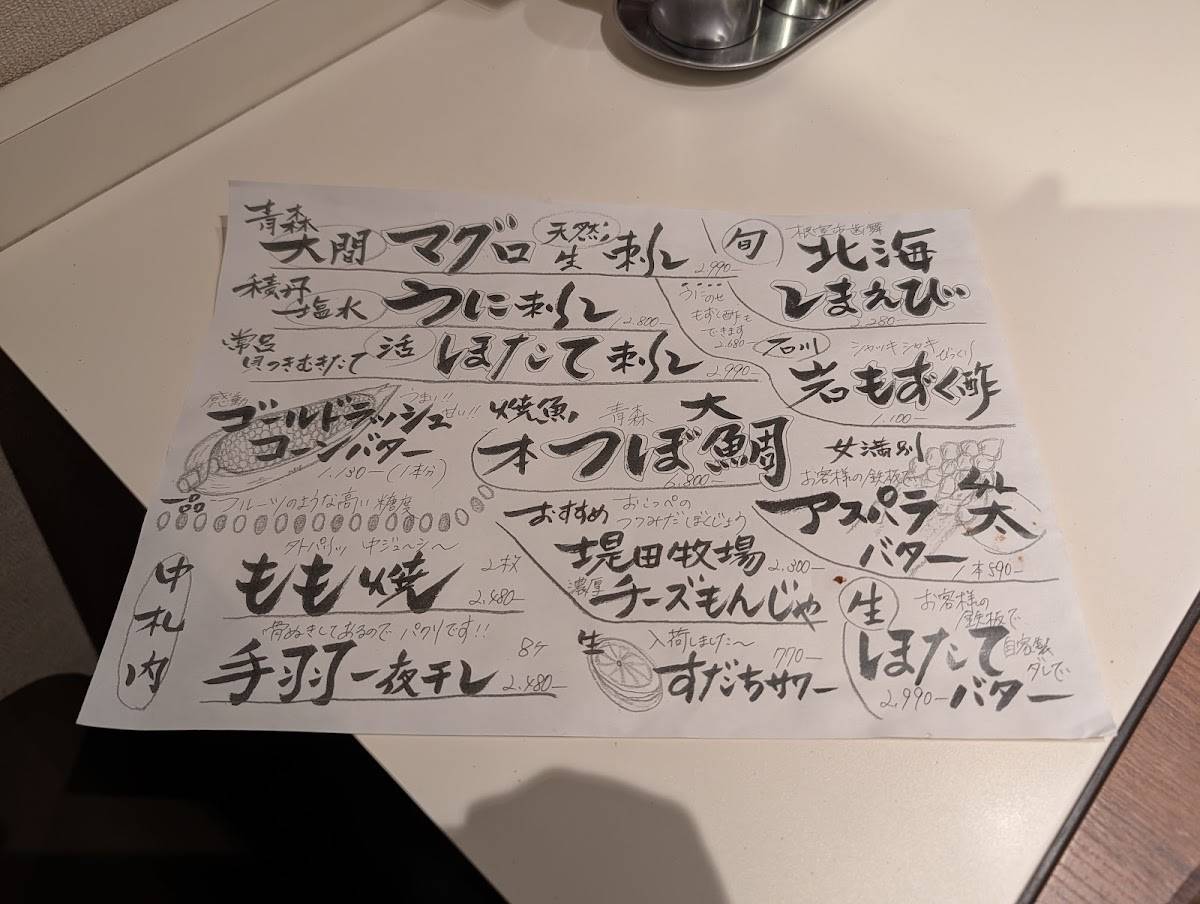 青森
大間 マグロ 天然 生 刺し 2,990-
積丹
塩水 うに刺し 2,800-
常呂
貝つきむきたて 活 ほたて刺し 2,990-
うにのせ
もずく酢も
できます
2,680-
旬 根室市歯舞
北海
しまえび
3,280-
石川 シャッキシャキ びっくり
岩もずく酢
1,100-
感動 うまい!! 甘い!!
ゴールドラッシュ
コーンバター
1,130-(1本分)
フルーツのような高い糖度
焼魚 青森 大
本つぼ鯛
6,800-
女満別
お客様の鉄板で
アスパラ
バター
1本590-
おすすめ おこっぺの
つつみだぼくじょう
堤田牧場 2,300-
濃厚 チーズもんじゃ
中札内
外パリッ 中ジューシ〜
もも焼 2枚
2,480-
骨ぬきしてあるので パクリです!!
手羽一夜干し 8ケ
2,480-
生 入荷しました〜
すだちサワー 770-
生 お客様の
鉄板で
ほたて
バター
自家製
ダレで
2,990-